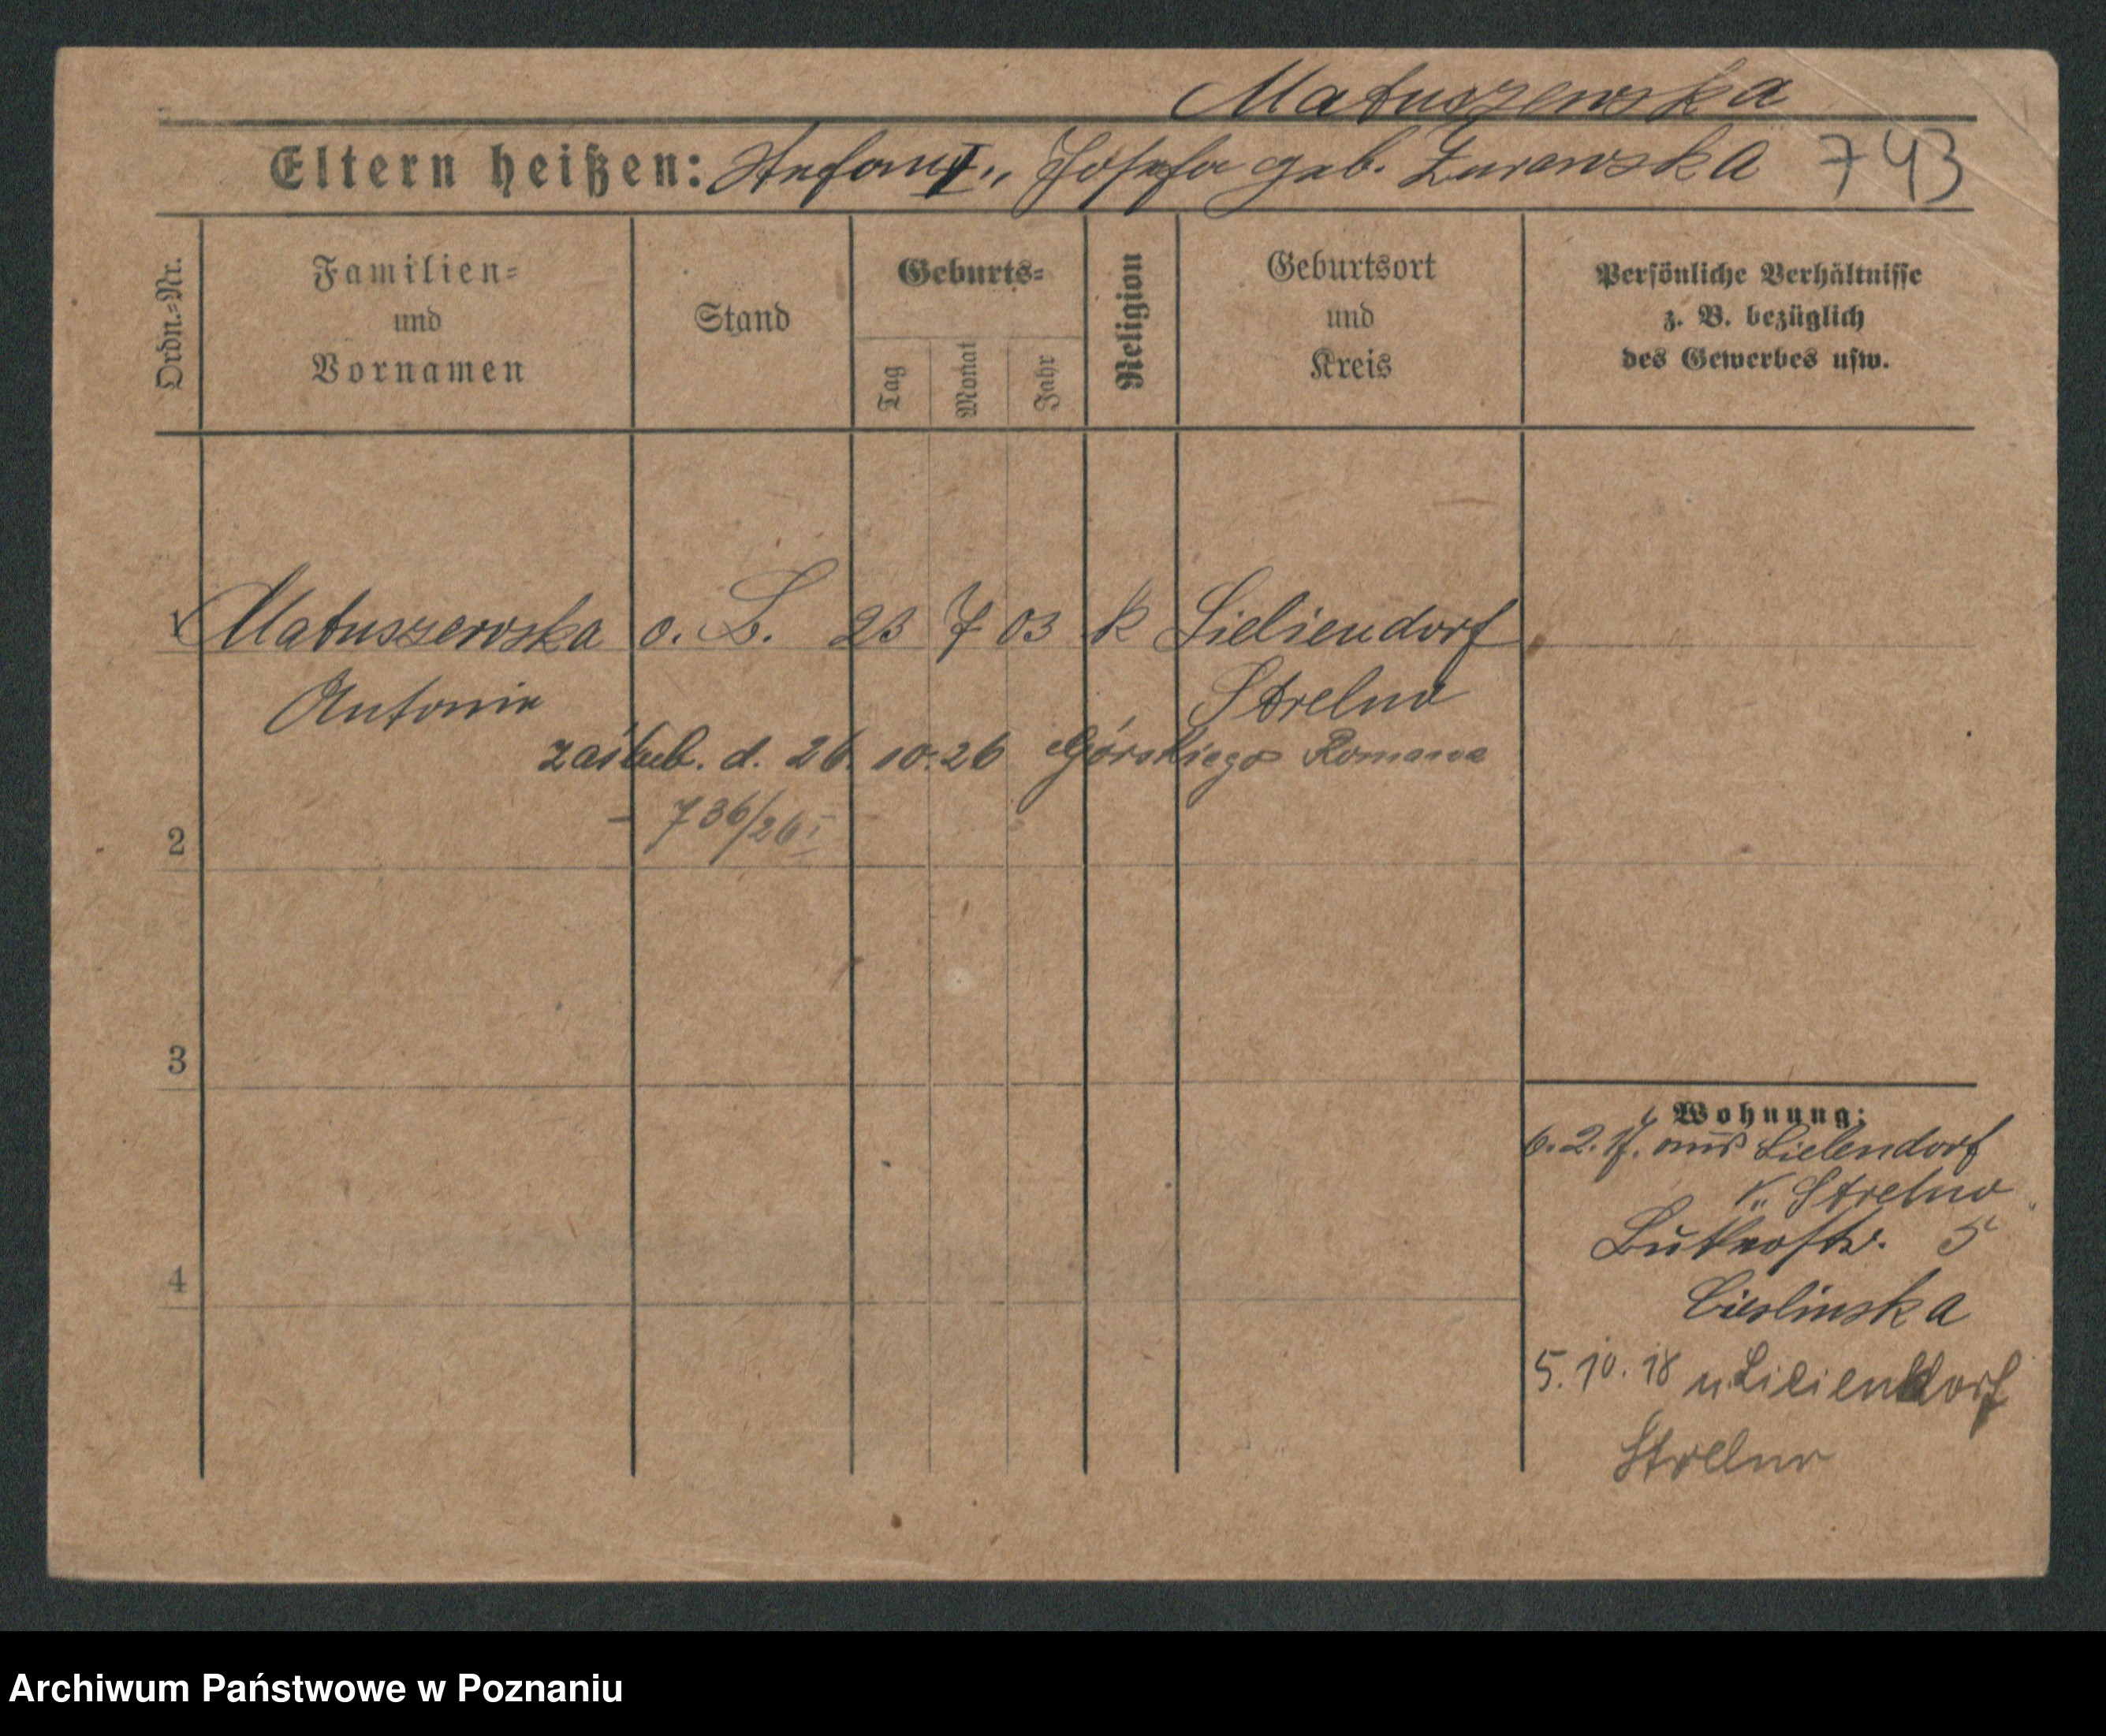 Matuszewska
Eltern heißen: Antoni, Josefa geb. Zurawska 743
Ordn.-Nr.
Familien-
und
Vornamen
Stand
Geburts-
Tag
Monat
Jahr
Religion
Geburtsort
und
Kreis
Persönliche Verhältnisse
z. B. bezüglich
des Gewerbes usw.
1 Matuszewska o. B. 23 7 03 k Lieliendorf
Antonie Strelno
zaślub. d. 26. 10. 26 Górskiego Romana
- 736/26 I
2
3
4
Wohnung:
6. 2. 17. aus Lielendorf
K. Strelno
5
Cieslinska
5. 10. 18 n. Liliendorf
Strelno
Archiwum Państwowe w Poznaniu